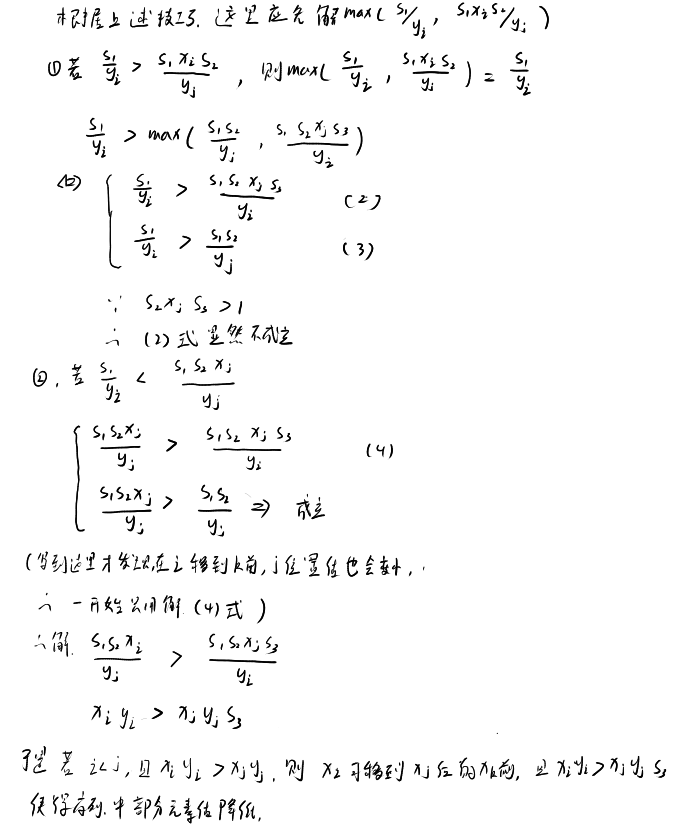 根据上述技巧. 这里应先解 max( s₁/yᵢ , s₁xᵢs₂/yⱼ )
① 若 s₁/yᵢ > s₁xᵢs₂/yⱼ , 则 max( s₁/yᵢ , s₁xᵢs₂/yⱼ ) = s₁/yᵢ
s₁/yᵢ > max( s₁s₂/yⱼ , s₁s₂xⱼs₃/yᵢ )
⇔ { s₁/yᵢ > s₁s₂xⱼs₃/yᵢ (2)
s₁/yᵢ > s₁s₂/yⱼ (3)
∵ s₂xⱼs₃ > 1
∴ (2) 式显然不成立
②. 若 s₁/yᵢ < s₁s₂xⱼ/yⱼ
{ s₁s₂xⱼ/yⱼ > s₁s₂xⱼs₃/yᵢ (4)
s₁s₂xⱼ/yⱼ > s₁s₂/yⱼ ⇒ 成立
(写到这里才发现,在 i 移到 k 前, j 位置值也会变小,
∴ 一开始只用解 (4) 式 )
∴ 解. s₁s₂xᵢ/yⱼ > s₁s₂xⱼs₃/yᵢ
xᵢyᵢ > xⱼyⱼs₃
于是 若 i<j, 且 xᵢyᵢ > xⱼyⱼ, 则 xᵢ 可移到 xⱼ 后面 xₖ前, 且 xᵢyᵢ > xⱼyⱼs₃
使得序列.中部分元素值降低.